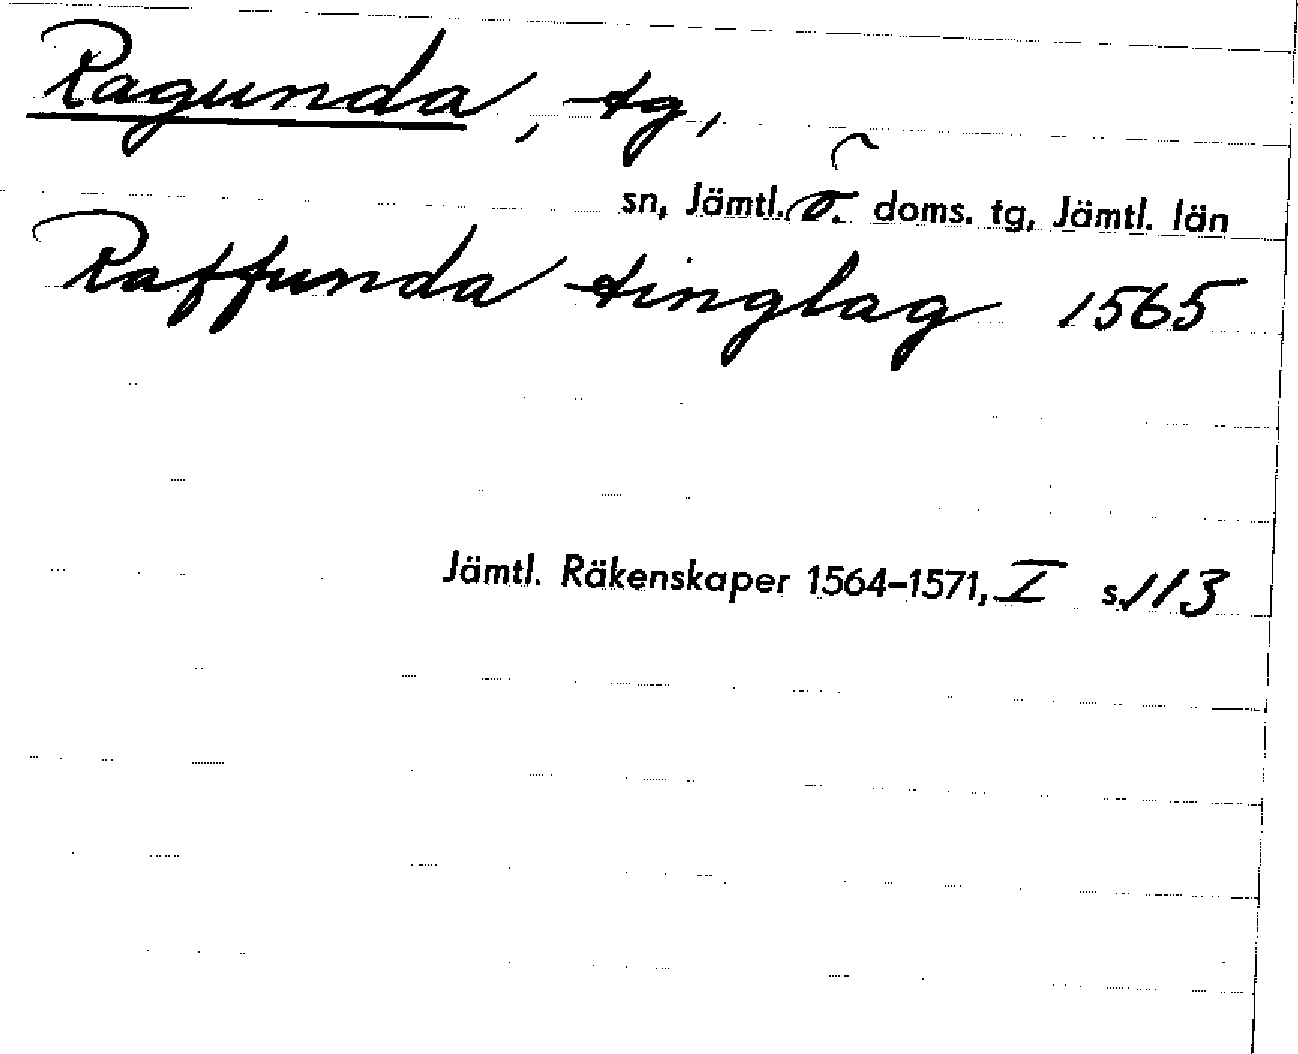 Ragunda, tg,
sn, Jämtl. ö. doms. tg, Jämtl. län
Raffunda tinglag 1565
Jämtl. Räkenskaper 1564-1571, I s. 113